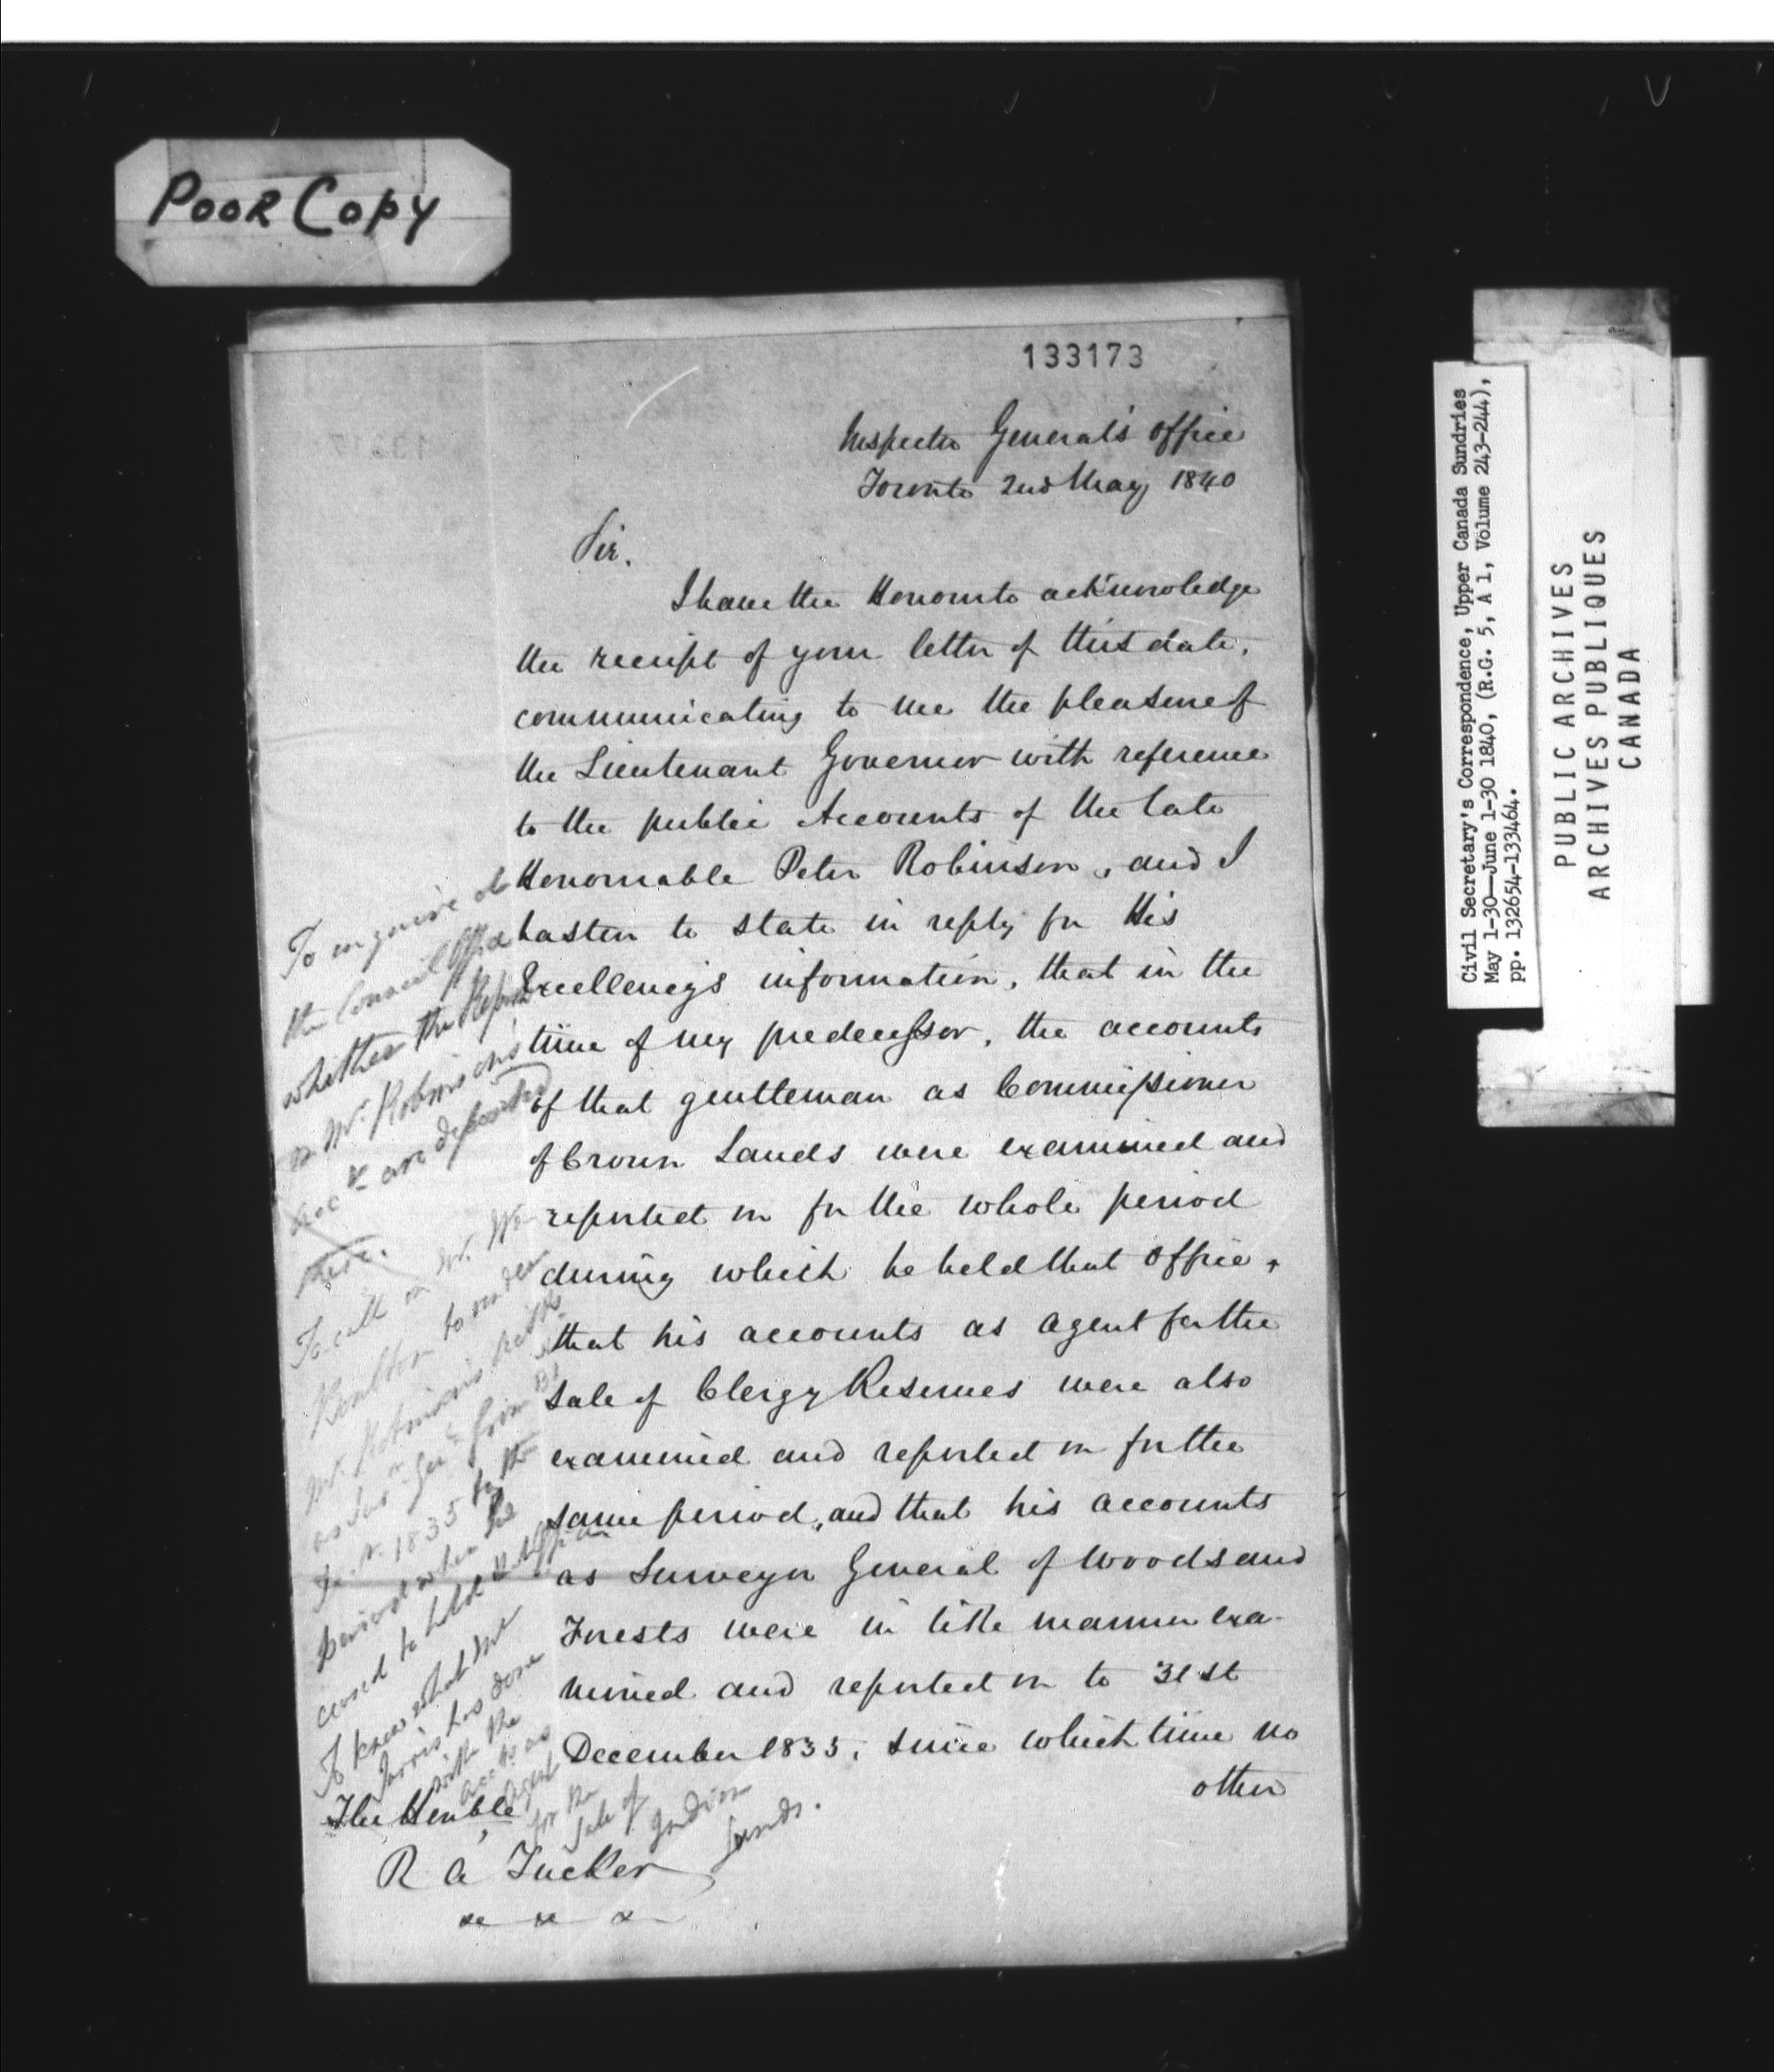 POOR COPY
133173
Inspector General's Office
Toronto 2nd May 1840
Sir.
I have the Honour to acknowledge
the receipt of your letter of this date,
communicating to me the pleasure of
the Lieutenant Governor with reference
to the public Accounts of the late
Honourable Peter Robinson, and I
hasten to state in reply for His
Excellency's information, that in the
time of my predecessor, the accounts
of that gentleman as Commissioner
of Crown Lands were examined and
reported on for the whole period
during which he held that office,
that his accounts as agent for the
sale of Clergy Reserves were also
examined and reported on for the
same period, and that his accounts
as Surveyor General of Woods and
Forests were in like manner exa-
mined and reported on to 31st
December 1835, since which time no
other
The Honble
R A Tucker
&c &c &c
To enquire at
the Council Office
whether the Report
on Mr Robinson's
Acc ts are deposited
there.
To call on Mr. Wm
Boulton to render
Mr. Robinson's
as Sur Genl from 31
1835 to the
period when he
ceased to hold that Office
To know what Mr
Jarvis has done
with the
Accts as
Agent
for the
Sale of
Indian
Lands.
Civil Secretary's Correspondence, Upper Canada Sundries
May 1-30—June 1-30 1840, (R.G. 5, A 1, Volume 243-244),
pp. 132654-133464.
PUBLIC ARCHIVES
ARCHIVES PUBLIQUES
CANADA